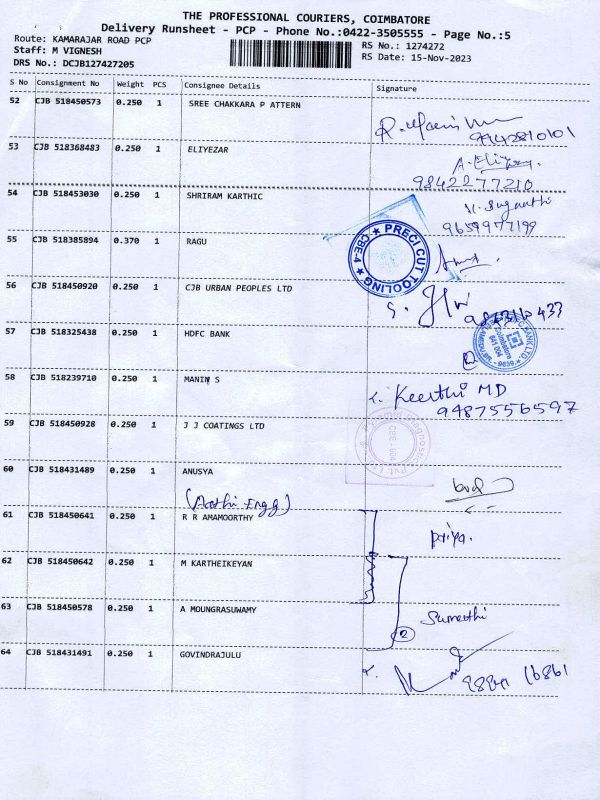 THE PROFESSIONAL COURIERS, COIMBATORE
Delivery Runsheet - PCP - Phone No.:0422-3505555 - Page No.:5
Route: KAMARAJAR ROAD PCP
Staff: M VIGNESH
DRS No.: DCJB127427205
RS No.: 1274272
RS Date: 15-Nov-2023
S No Consignment No Weight PCS Consignee Details Signature
52 CJB 518450573 0.250 1 SREE CHAKKARA P ATTERN
9942810101
53 CJB 518368483 0.250 1 ELIYEZAR
9842277210
54 CJB 518453030 0.250 1 SHRIRAM KARTHIC
9659977199
55 CJB 518385894 0.370 1 RAGU
PRECI CUT TOOLING
CBE-4
56 CJB 518450920 0.250 1 CJB URBAN PEOPLES LTD
57 CJB 518325438 0.250 1 HDFC BANK
58 CJB 518239710 0.250 1 MANIN S
Keerthi MD
9487556597
59 CJB 518450928 0.250 1 J J COATINGS LTD
60 CJB 518431489 0.250 1 ANUSYA
61 CJB 518450641 0.250 1 R R AMAMOORTHY
priya.
62 CJB 518450642 0.250 1 M KARTHEIKEYAN
63 CJB 518450578 0.250 1 A MOUNGRASUWAMY
Sumathi
2
64 CJB 518431491 0.250 1 GOVINDRAJULU